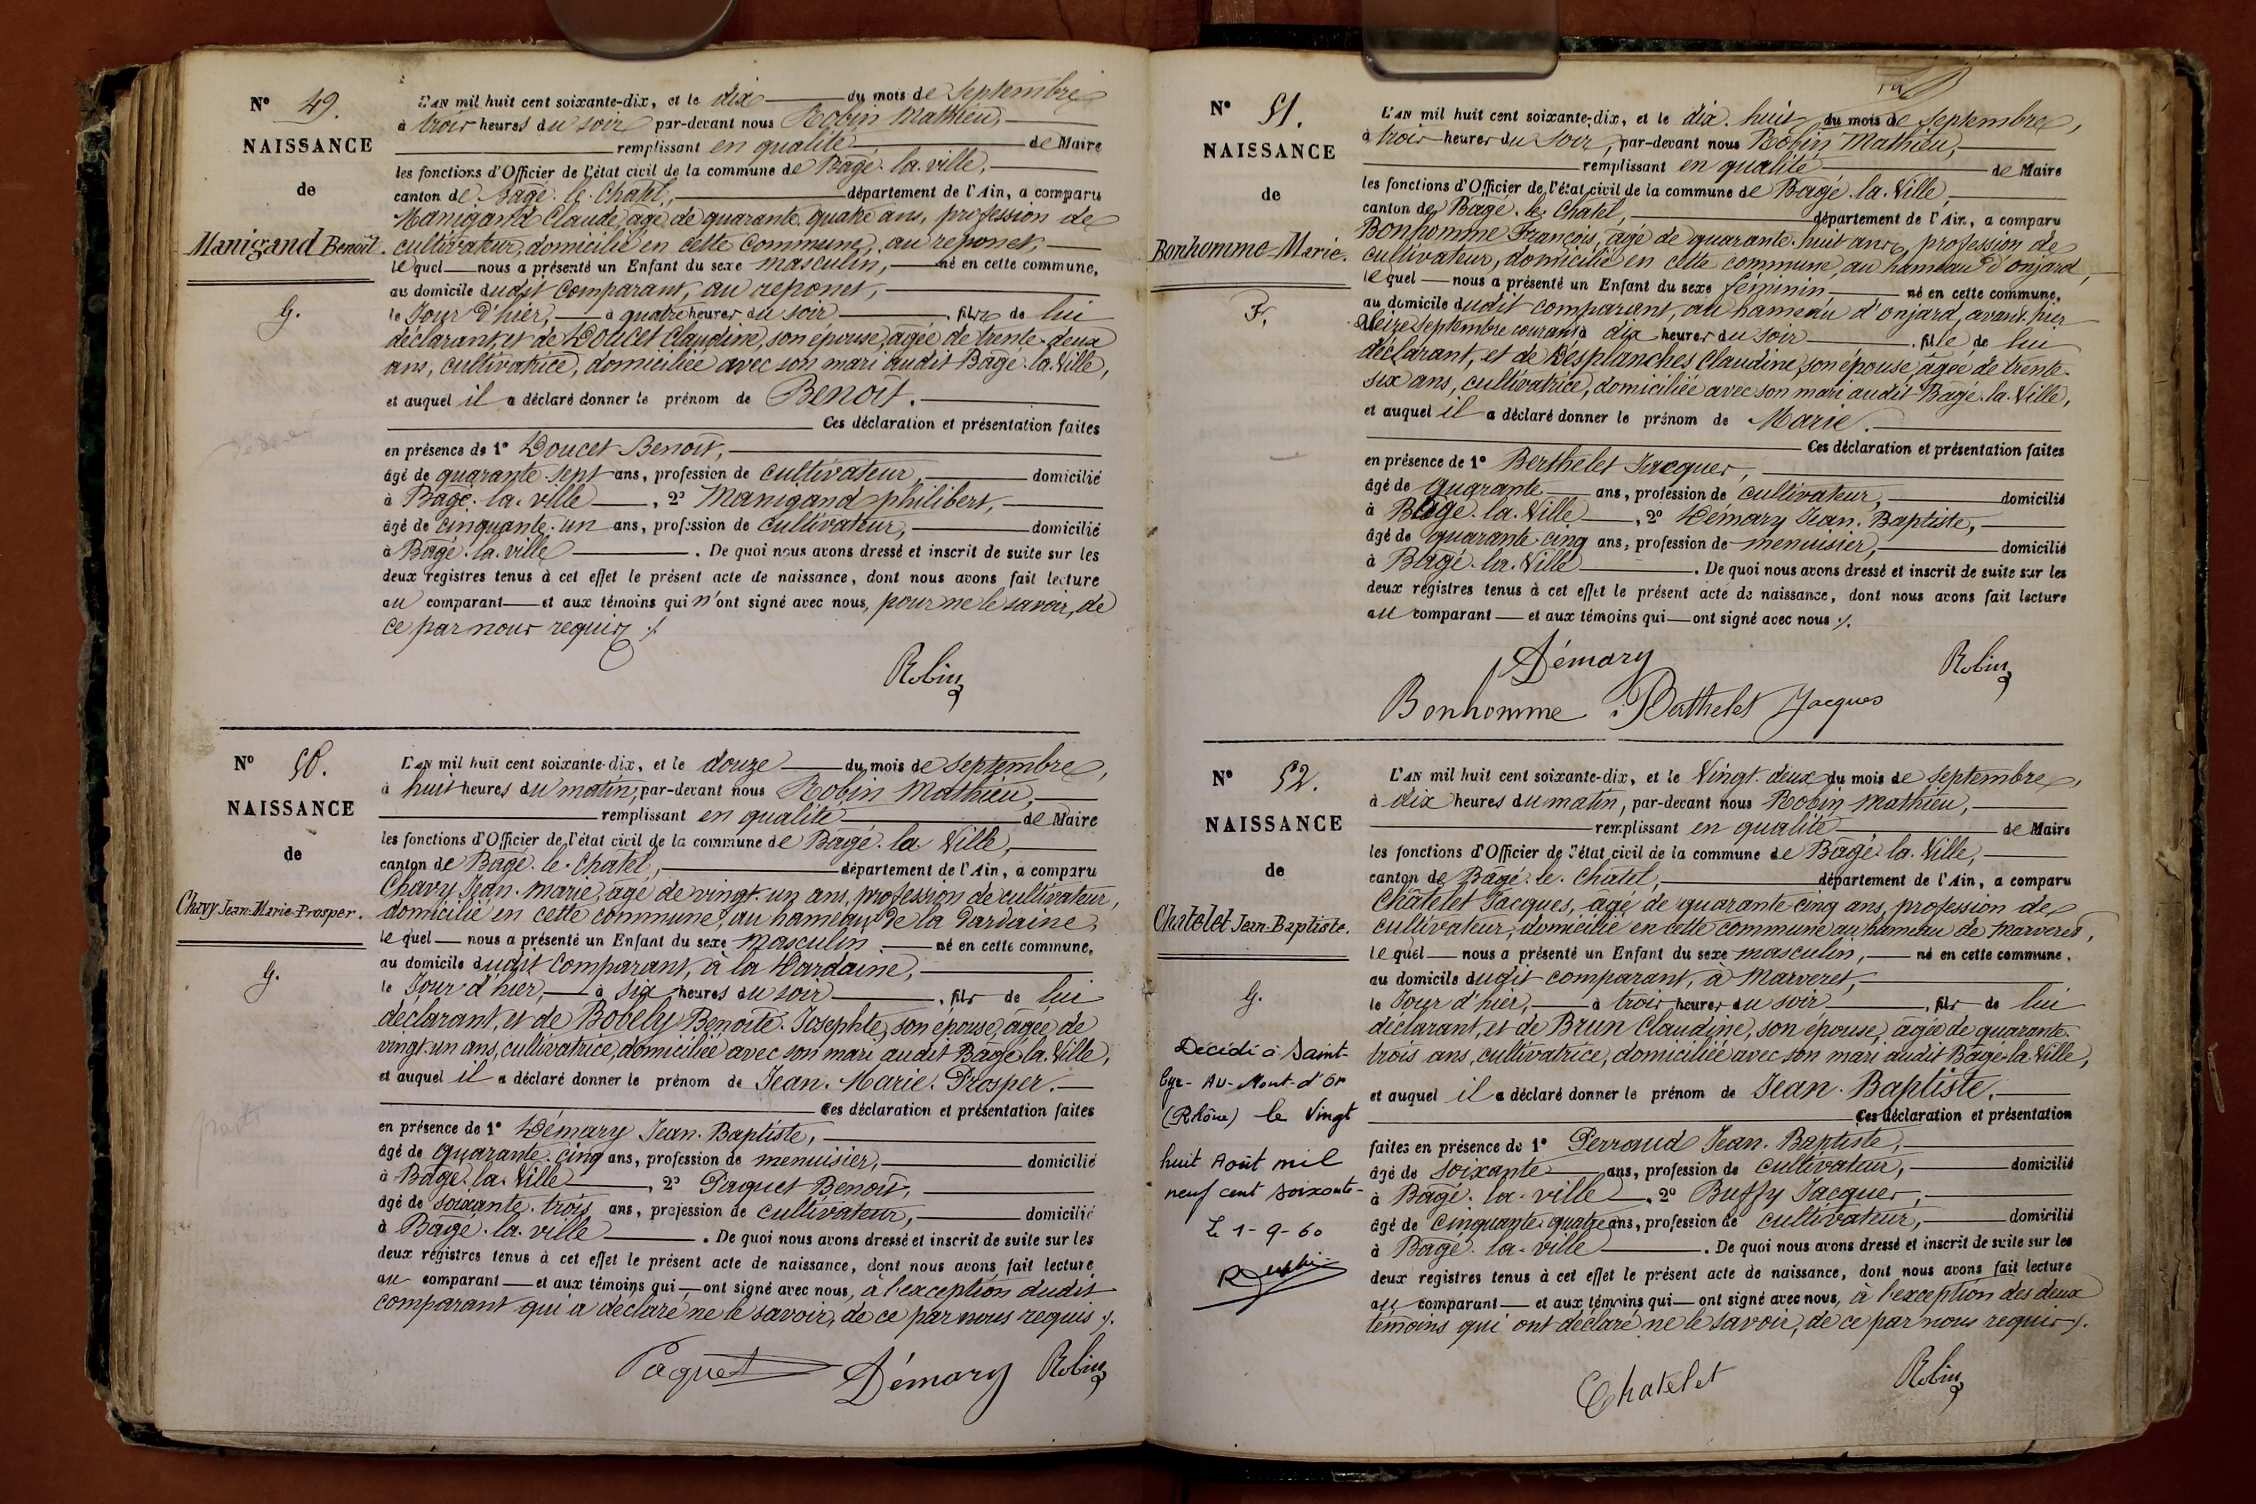 N° 49.
NAISSANCE
de
Manigand Benoît.
G.
L'AN mil huit cent soixante-dix, et le dix du mois de septembre
à trois heures du soir par-devant nous Robin Mathieu,
remplissant en qualité de Maire
les fonctions d'Officier de l'état civil de la commune de Bagé-la-ville,
canton de Bagé-le-Chatel, département de l'Ain, a comparu
Manigand Claude, âgé de quarante-quatre ans, profession de
cultivateur, domicilié en cette commune, au reponet,
lequel nous a présenté un Enfant du sexe masculin, né en cette commune,
au domicile dudit comparant, au reponet,
le Jour d'hier, à quatre heures du soir, fils de lui
déclarant, et de Doucet Claudine, son épouse, âgée de trente-deux
ans, cultivatrice, domiciliée avec son mari audit Bagé-la-Ville,
et auquel il a déclaré donner le prénom de Benoît.
Ces déclaration et présentation faites
en présence de 1° Doucet Benoît,
âgé de quarante-sept ans, profession de cultivateur, domicilié
à Bagé-la-ville, 2° Manigand Philibert,
âgé de cinquante-un ans, profession de cultivateur, domicilié
à Bagé-la-ville. De quoi nous avons dressé et inscrit de suite sur les
deux registres tenus à cet effet le présent acte de naissance, dont nous avons fait lecture
au comparant et aux témoins qui n'ont signé avec nous, pour ne le savoir, de
ce par nous requis ./.
Robin
N° 50.
NAISSANCE
de
Chavy Jean-Marie-Prosper.
G.
L'AN mil huit cent soixante-dix, et le douze du mois de septembre,
à huit heures du matin, par-devant nous Robin Mathieu,
remplissant en qualité de Maire
les fonctions d'Officier de l'état civil de la commune de Bagé-la-Ville,
canton de Bagé-le-Chatel, département de l'Ain, a comparu
Chavy Jean-Marie, âgé de vingt-un ans, profession de cultivateur,
domicilié en cette commune, au hameau de la Dardaine,
lequel nous a présenté un Enfant du sexe masculin, né en cette commune,
au domicile dudit comparant, à la Dardaine,
le Jour d'hier, à six heures du soir, fils de lui
déclarant, et de Bobély Benoite-Josephte, son épouse, âgée de
vingt-un ans, cultivatrice, domiciliée avec son mari audit Bagé-la-Ville,
et auquel il a déclaré donner le prénom de Jean-Marie-Prosper.
Ces déclaration et présentation faites
en présence de 1° Démary Jean-Baptiste,
âgé de quarante-cinq ans, profession de menuisier, domicilié
à Bagé-la-Ville, 2° Paquet Benoît,
âgé de soixante-trois ans, profession de cultivateur, domicilié
à Bagé-la-ville. De quoi nous avons dressé et inscrit de suite sur les
deux registres tenus à cet effet le présent acte de naissance, dont nous avons fait lecture
au comparant et aux témoins qui ont signé avec nous, à l'exception dudit
comparant qui a déclaré ne le savoir, de ce par nous requis ./.
Paquet Démary Robin
N° 51.
NAISSANCE
de
Bonhomme Marie.
F.
L'AN mil huit cent soixante-dix, et le dix-huit du mois de septembre,
à trois heures du soir, par-devant nous Robin Mathieu,
remplissant en qualité de Maire
les fonctions d'Officier de l'état civil de la commune de Bagé-la-Ville,
canton de Bagé-le-Chatel, département de l'Ain, a comparu
Bonhomme François, âgé de quarante-huit ans, profession de
cultivateur, domicilié en cette commune, au hameau d'onjard,
lequel nous a présenté un Enfant du sexe féminin né en cette commune,
au domicile dudit comparant, au hameau d'onjard, avant-hier
seize septembre courant à dix heures du soir, fille de lui
déclarant, et de Desplanches Claudine, son épouse, âgée de trente-
six ans, cultivatrice, domiciliée avec son mari audit Bagé-la-Ville,
et auquel il a déclaré donner le prénom de Marie.
Ces déclaration et présentation faites
en présence de 1° Berthelet Jacques,
âgé de quarante ans, profession de cultivateur, domicilié
à Bagé-la-Ville, 2° Démary Jean-Baptiste,
âgé de quarante-cinq ans, profession de menuisier, domicilié
à Bagé-la-Ville. De quoi nous avons dressé et inscrit de suite sur les
deux registres tenus à cet effet le présent acte de naissance, dont nous avons fait lecture
au comparant et aux témoins qui ont signé avec nous ./.
Démary Robin
Bonhomme Bathelet Jacques
N° 52.
NAISSANCE
de
Chatelet Jean-Baptiste.
G.
Décédé à Saint-
Cyr-Au-Mont-d'Or
(Rhône) le Vingt
huit Août mil
neuf cent soixante-
Le 1-9-60
L'AN mil huit cent soixante-dix, et le Vingt-deux du mois de septembre,
à dix heures du matin, par-devant nous Robin Mathieu,
remplissant en qualité de Maire
les fonctions d'Officier de l'état civil de la commune de Bagé-la-Ville,
canton de Bagé-le-Chatel, département de l'Ain, a comparu
Châtelet Jacques, âgé de quarante-cinq ans, profession de
cultivateur, domicilié en cette commune au hameau de Marveret,
lequel nous a présenté un Enfant du sexe masculin, né en cette commune,
au domicile dudit comparant, à Marveret,
le Jour d'hier, à trois heures du soir, fils de lui
déclarant, et de Brun Claudine, son épouse, âgée de quarante-
trois ans, cultivatrice, domiciliée avec son mari audit Bagé-la-Ville,
et auquel il a déclaré donner le prénom de Jean-Baptiste.
Ces déclaration et présentation
faites en présence de 1° Perraud Jean-Baptiste,
âgé de soixante ans, profession de cultivateur, domicilié
à Bagé-la-ville, 2° Buffy Jacques,
âgé de cinquante-quatre ans, profession de cultivateur, domicilié
à Bagé-la-ville. De quoi nous avons dressé et inscrit de suite sur les
deux registres tenus à cet effet le présent acte de naissance, dont nous avons fait lecture
au comparant et aux témoins qui ont signé avec nous, à l'exception des deux
témoins qui ont déclaré ne le savoir, de ce par nous requis ./.
Chatelet Robin